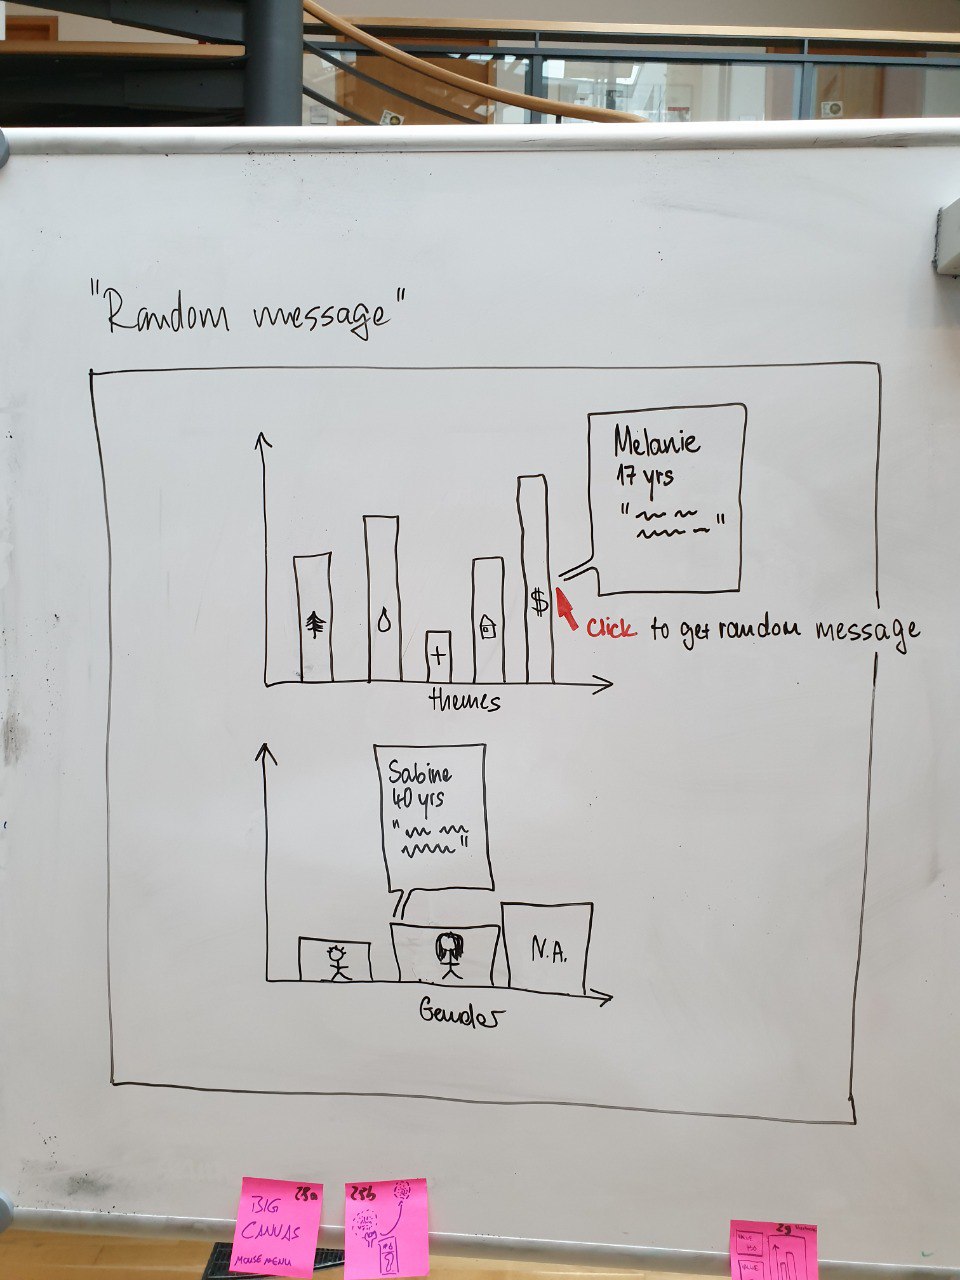 "Random message"
Melanie
17 yrs
"
"
$
+
click to get random message
themes
Sabine
40 yrs
"
"
N.A.
Gender
23a
BIG
CANVAS
MOUSE MENU
23b
2g
VALUE
VALUE